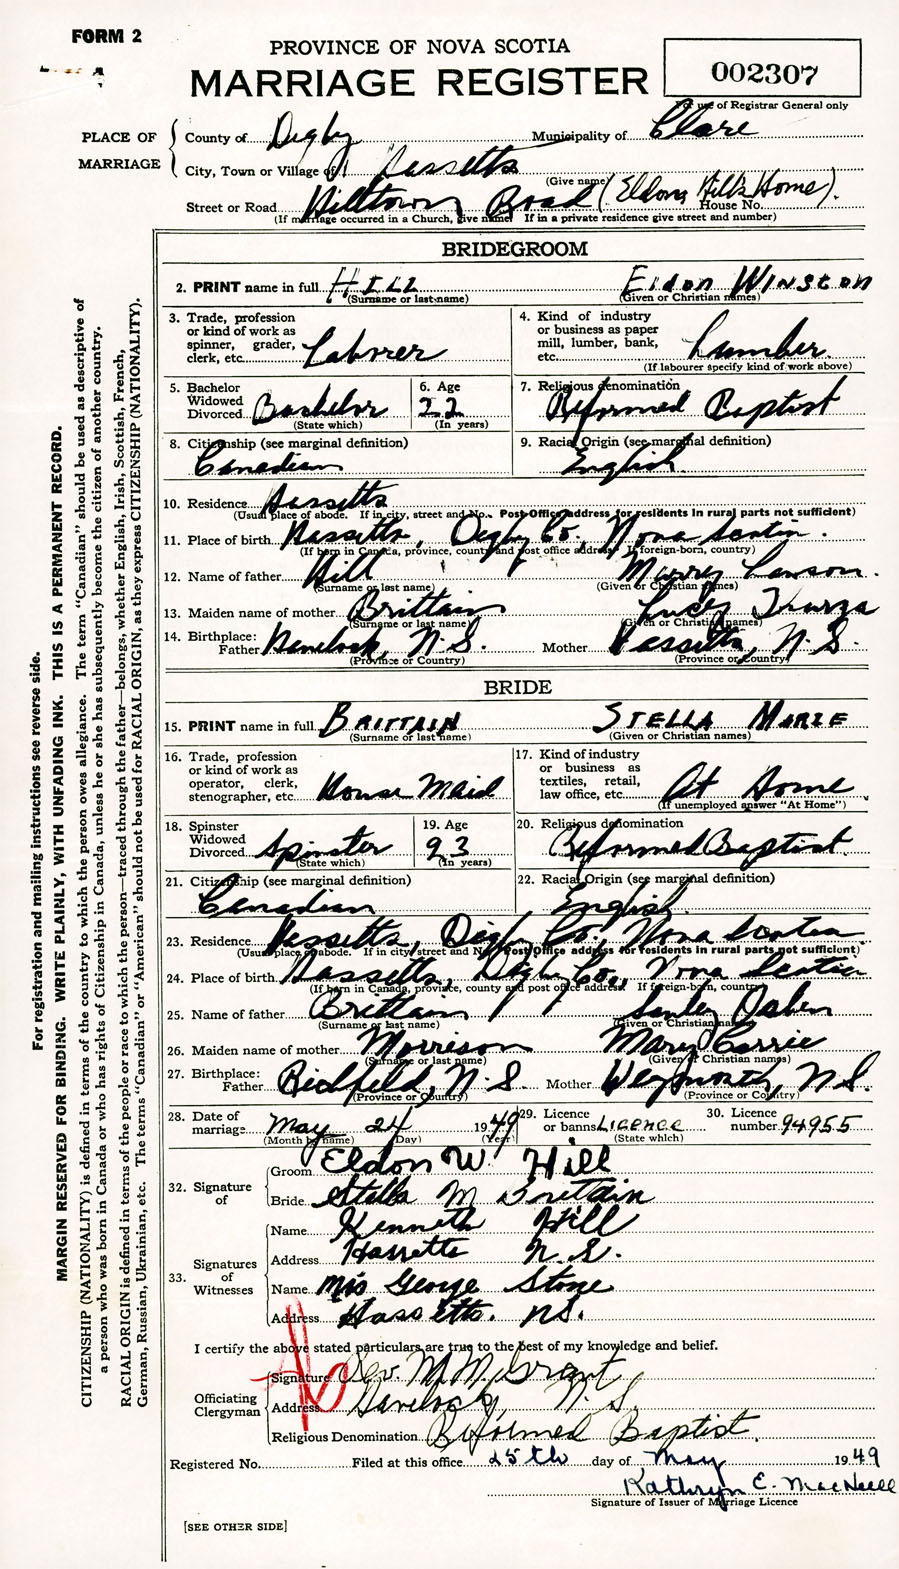 FORM 2
PROVINCE OF NOVA SCOTIA
MARRIAGE REGISTER
002307
For use of Registrar General only
PLACE OF MARRIAGE
County of Digby Municipality of Clare
City, Town or Village of Hassetts
(Give name)
Street or Road Hilltown Road (Eldon Hill's Home). House No.
(If marriage occurred in a Church, give name) If in a private residence give street and number)
BRIDEGROOM
2. PRINT name in full HILL ELDON WINSTON
(Surname or last name) (Given or Christian names)
3. Trade, profession or kind of work as spinner, grader, clerk, etc. Laborer
4. Kind of industry or business as paper mill, lumber, bank, etc. Lumber.
(If labourer specify kind of work above)
5. Bachelor Widowed Divorced Bachelor (State which)
6. Age 22 (In years)
7. Religious denomination Reformed Baptist
8. Citizenship (see marginal definition) Canadian
9. Racial Origin (see marginal definition) English
10. Residence Hassetts
(Usual place of abode. If in city, street and No. Post Office address for residents in rural parts not sufficient)
11. Place of birth Hassetts, Digby Co, Nova Scotia.
(If born in Canada, province, county and post office address. If foreign-born, country)
12. Name of father Hill Murrey Lawson.
(Surname or last name) (Given or Christian names)
13. Maiden name of mother Brittain Lucy
(Surname or last name) (Given or Christian names)
14. Birthplace: Father Havelock, N.S. Mother Hassetts, N.S.
(Province or Country) (Province or Country)
BRIDE
15. PRINT name in full BRITTAIN STELLA MARIE
(Surname or last name) (Given or Christian names)
16. Trade, profession or kind of work as operator, clerk, stenographer, etc. House Maid
17. Kind of industry or business as textiles, retail, law office, etc. At Home
(If unemployed answer "At Home")
18. Spinster Widowed Divorced Spinster (State which)
19. Age 23 (In years)
20. Religious denomination Reformed Baptist.
21. Citizenship (see marginal definition) Canadian
22. Racial Origin (see marginal definition) English
23. Residence Hassetts, Digby Co, Nova Scotia
(Usual place of abode. If in city street and No. Post Office address for residents in rural parts not sufficient)
24. Place of birth Hassetts, Digby Co, Nova Scotia
(If born in Canada, province, county and post office address. If foreign-born, country)
25. Name of father Brittain
(Surname or last name) (Given or Christian names)
26. Maiden name of mother Morrison Mary Carrie
(Surname or last name) (Given or Christian names)
27. Birthplace: Father Richfield, N.S. Mother Weymouth, N.S.
(Province or Country) (Province or Country)
28. Date of marriage May 24 1949
(Month by name) (Day) (Year)
29. Licence or banns LICENCE (State which)
30. Licence number 94955
32. Signature of
Groom Eldon W. Hill
Bride Stella M Brittain
33. Signatures of Witnesses
Name Kenneth Hill
Address Hassetts N.S.
Name Mrs George Stone
Address Hassetts. N.S.
I certify the above stated particulars are true to the best of my knowledge and belief.
Officiating Clergyman
Signature Rev. M. M. Grant
Address Havelock, N.S.
Religious Denomination Reformed Baptist.
Registered No. Filed at this office 25th day of May 1949
Kathryn E. MacNeill
Signature of Issuer of Marriage Licence
[SEE OTHER SIDE]
For registration and mailing instructions see reverse side.
MARGIN RESERVED FOR BINDING. WRITE PLAINLY, WITH UNFADING INK. THIS IS A PERMANENT RECORD.
CITIZENSHIP (NATIONALITY) is defined in terms of the country to which the person owes allegiance. The term "Canadian" should be used as descriptive of
a person who was born in Canada or who has rights of Citizenship in Canada, unless he or she has subsequently become the citizen of another country.
RACIAL ORIGIN is defined in terms of the people or race to which the person—traced through the father—belongs, whether English, Irish, Scottish, French,
German, Russian, Ukrainian, etc. The terms "Canadian" or "American" should not be used for RACIAL ORIGIN, as they express CITIZENSHIP (NATIONALITY).